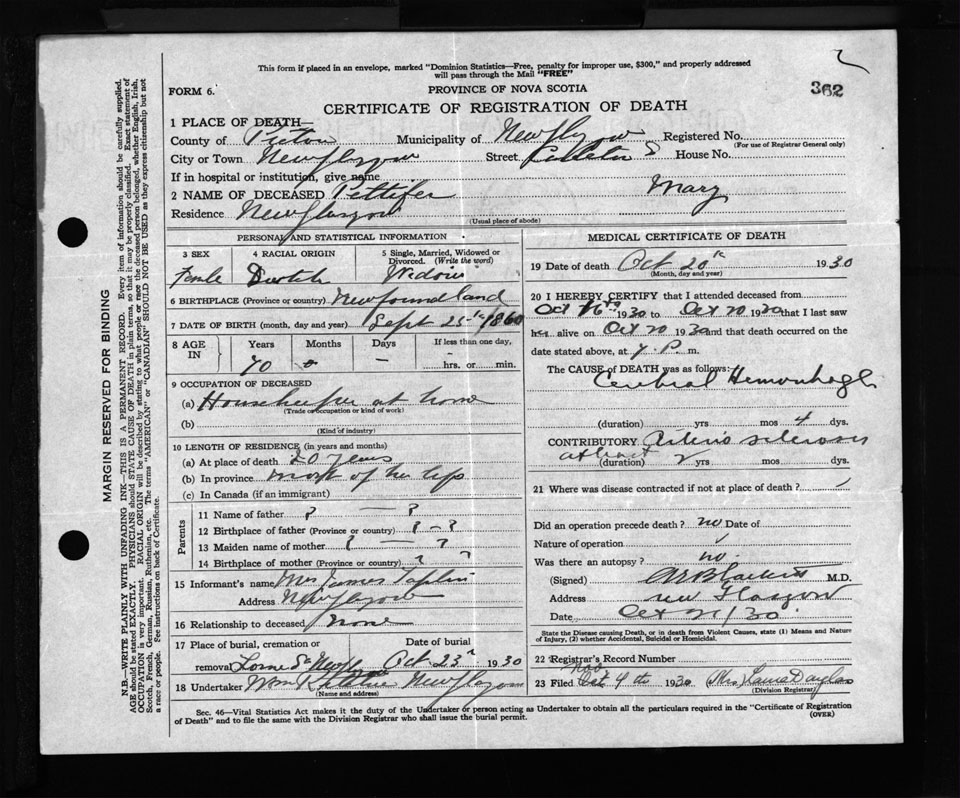 This form if placed in an envelope, marked "Dominion Statistics—Free, penalty for improper use, $300," and properly addressed
will pass through the Mail "FREE"
362
FORM 6.
PROVINCE OF NOVA SCOTIA
CERTIFICATE OF REGISTRATION OF DEATH
1 PLACE OF DEATH—
County of Pictou Municipality of New Glasgow Registered No.
(For use of Registrar General only)
City or Town New Glasgow Street House No.
If in hospital or institution, give name
2 NAME OF DECEASED Pettifer Mary
Residence New Glasgow
(Usual place of abode)
PERSONAL AND STATISTICAL INFORMATION
3 SEX 4 RACIAL ORIGIN 5 Single, Married, Widowed or
Divorced. (Write the word)
Femle Dutch Widow
6 BIRTHPLACE (Province or country) Newfoundland
7 DATE OF BIRTH (month, day and year) Sept 25th 1860
8 AGE IN Years Months Days If less than one day,
70 0 — – hrs. or min.
9 OCCUPATION OF DECEASED
(a) Housekeeper at home
(Trade or occupation or kind of work)
(b)
(Kind of industry)
10 LENGTH OF RESIDENCE (in years and months)
(a) At place of death 20 years
(b) In province most of her life
(c) In Canada (if an immigrant)
Parents
11 Name of father ? — ?
12 Birthplace of father (Province or country) ? – ?
13 Maiden name of mother ? — ?
14 Birthplace of mother (Province or country) ? ?
15 Informant's name Mrs James
Address New Glasgow
16 Relationship to deceased None
17 Place of burial, cremation or Date of burial
removal Lorne St New Gl Oct 23 1930
18 Undertaker Wm New Glasgow
(Name and address)
MEDICAL CERTIFICATE OF DEATH
19 Date of death Oct 20th 1930
(Month, day and year)
20 I HEREBY CERTIFY that I attended deceased from
Oct 16th 1930 to Oct 20 1930 that I last saw
her alive on Oct 20 1930 and that death occurred on
date stated above, at 7. P. m.
The CAUSE OF DEATH was as follows:
Cerebral Hemorrhage
(duration) yrs mos 4 dys.
CONTRIBUTORY Arterio sclerosis
about
(duration) 2 yrs mos dys.
21 Where was disease contracted if not at place of death?
Did an operation precede death? no Date of
Nature of operation
Was there an autopsy? no.
(Signed) M.D.
Address New Glasgow
Date Oct 21/30
State the Disease causing Death, or in death from Violent Causes, state (1) Means and Nature
of Injury, (2) whether Accidental, Suicidal or Homicidal.
22 Registrar's Record Number
23 Filed Oct Nov 4th 1930 Mrs
(Division Registrar)
Sec. 46—Vital Statistics Act makes it the duty of the Undertaker or person acting as Undertaker to obtain all the particulars required in the "Certificate of Registration
of Death" and to file the same with the Division Registrar who shall issue the burial permit. (OVER)
MARGIN RESERVED FOR BINDING
N.B.—WRITE PLAINLY WITH UNFADING INK—THIS IS A PERMANENT RECORD. Every item of information should be carefully supplied.
AGE should be stated EXACTLY. PHYSICIANS should STATE CAUSE OF DEATH in plain terms, so that it may be properly classified. Exact statement of
OCCUPATION is very important. RACIAL ORIGIN will be described by stating to what people or race the deceased person belonged, whether English, Irish,
Scotch, French, German, Russian, Ruthenian, etc. The terms "AMERICAN" or "CANADIAN" SHOULD NOT BE USED as they express citizenship but not
a race or people. See instructions on back of Certificate.